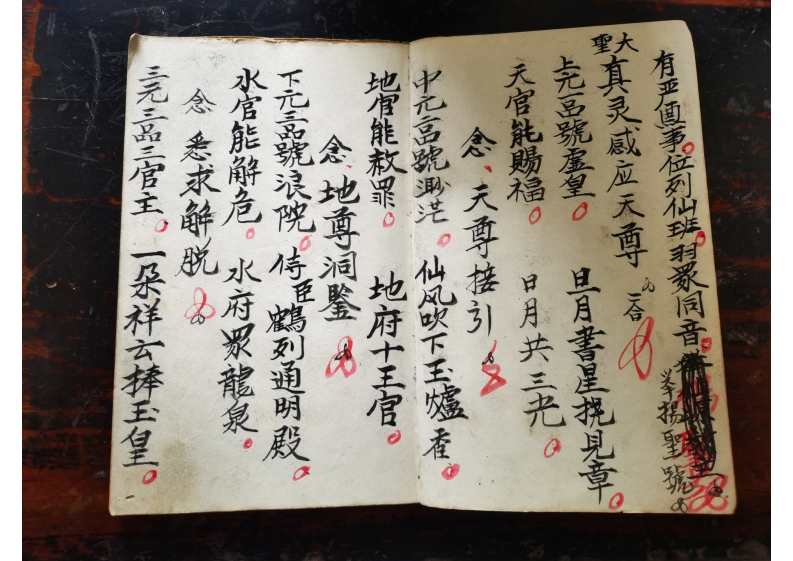 有亚僊事位列仙班羽眾同音
举揚聖號
大聖
真灵感应天尊 二合
上元一品號虛皇 旦月書星挽見章
天官能賜福 日月共三光
念 天尊接引
中元二品號渺茫 仙风吹下玉爐香
地官能赦罪 地府十王官
念 地尊洞鑒
下元三品號浪院 侍臣鶴列通明殿
水官能解危 水府眾龍泉
念 悉求解脱
三元三品三官主 一朵祥云捧玉皇